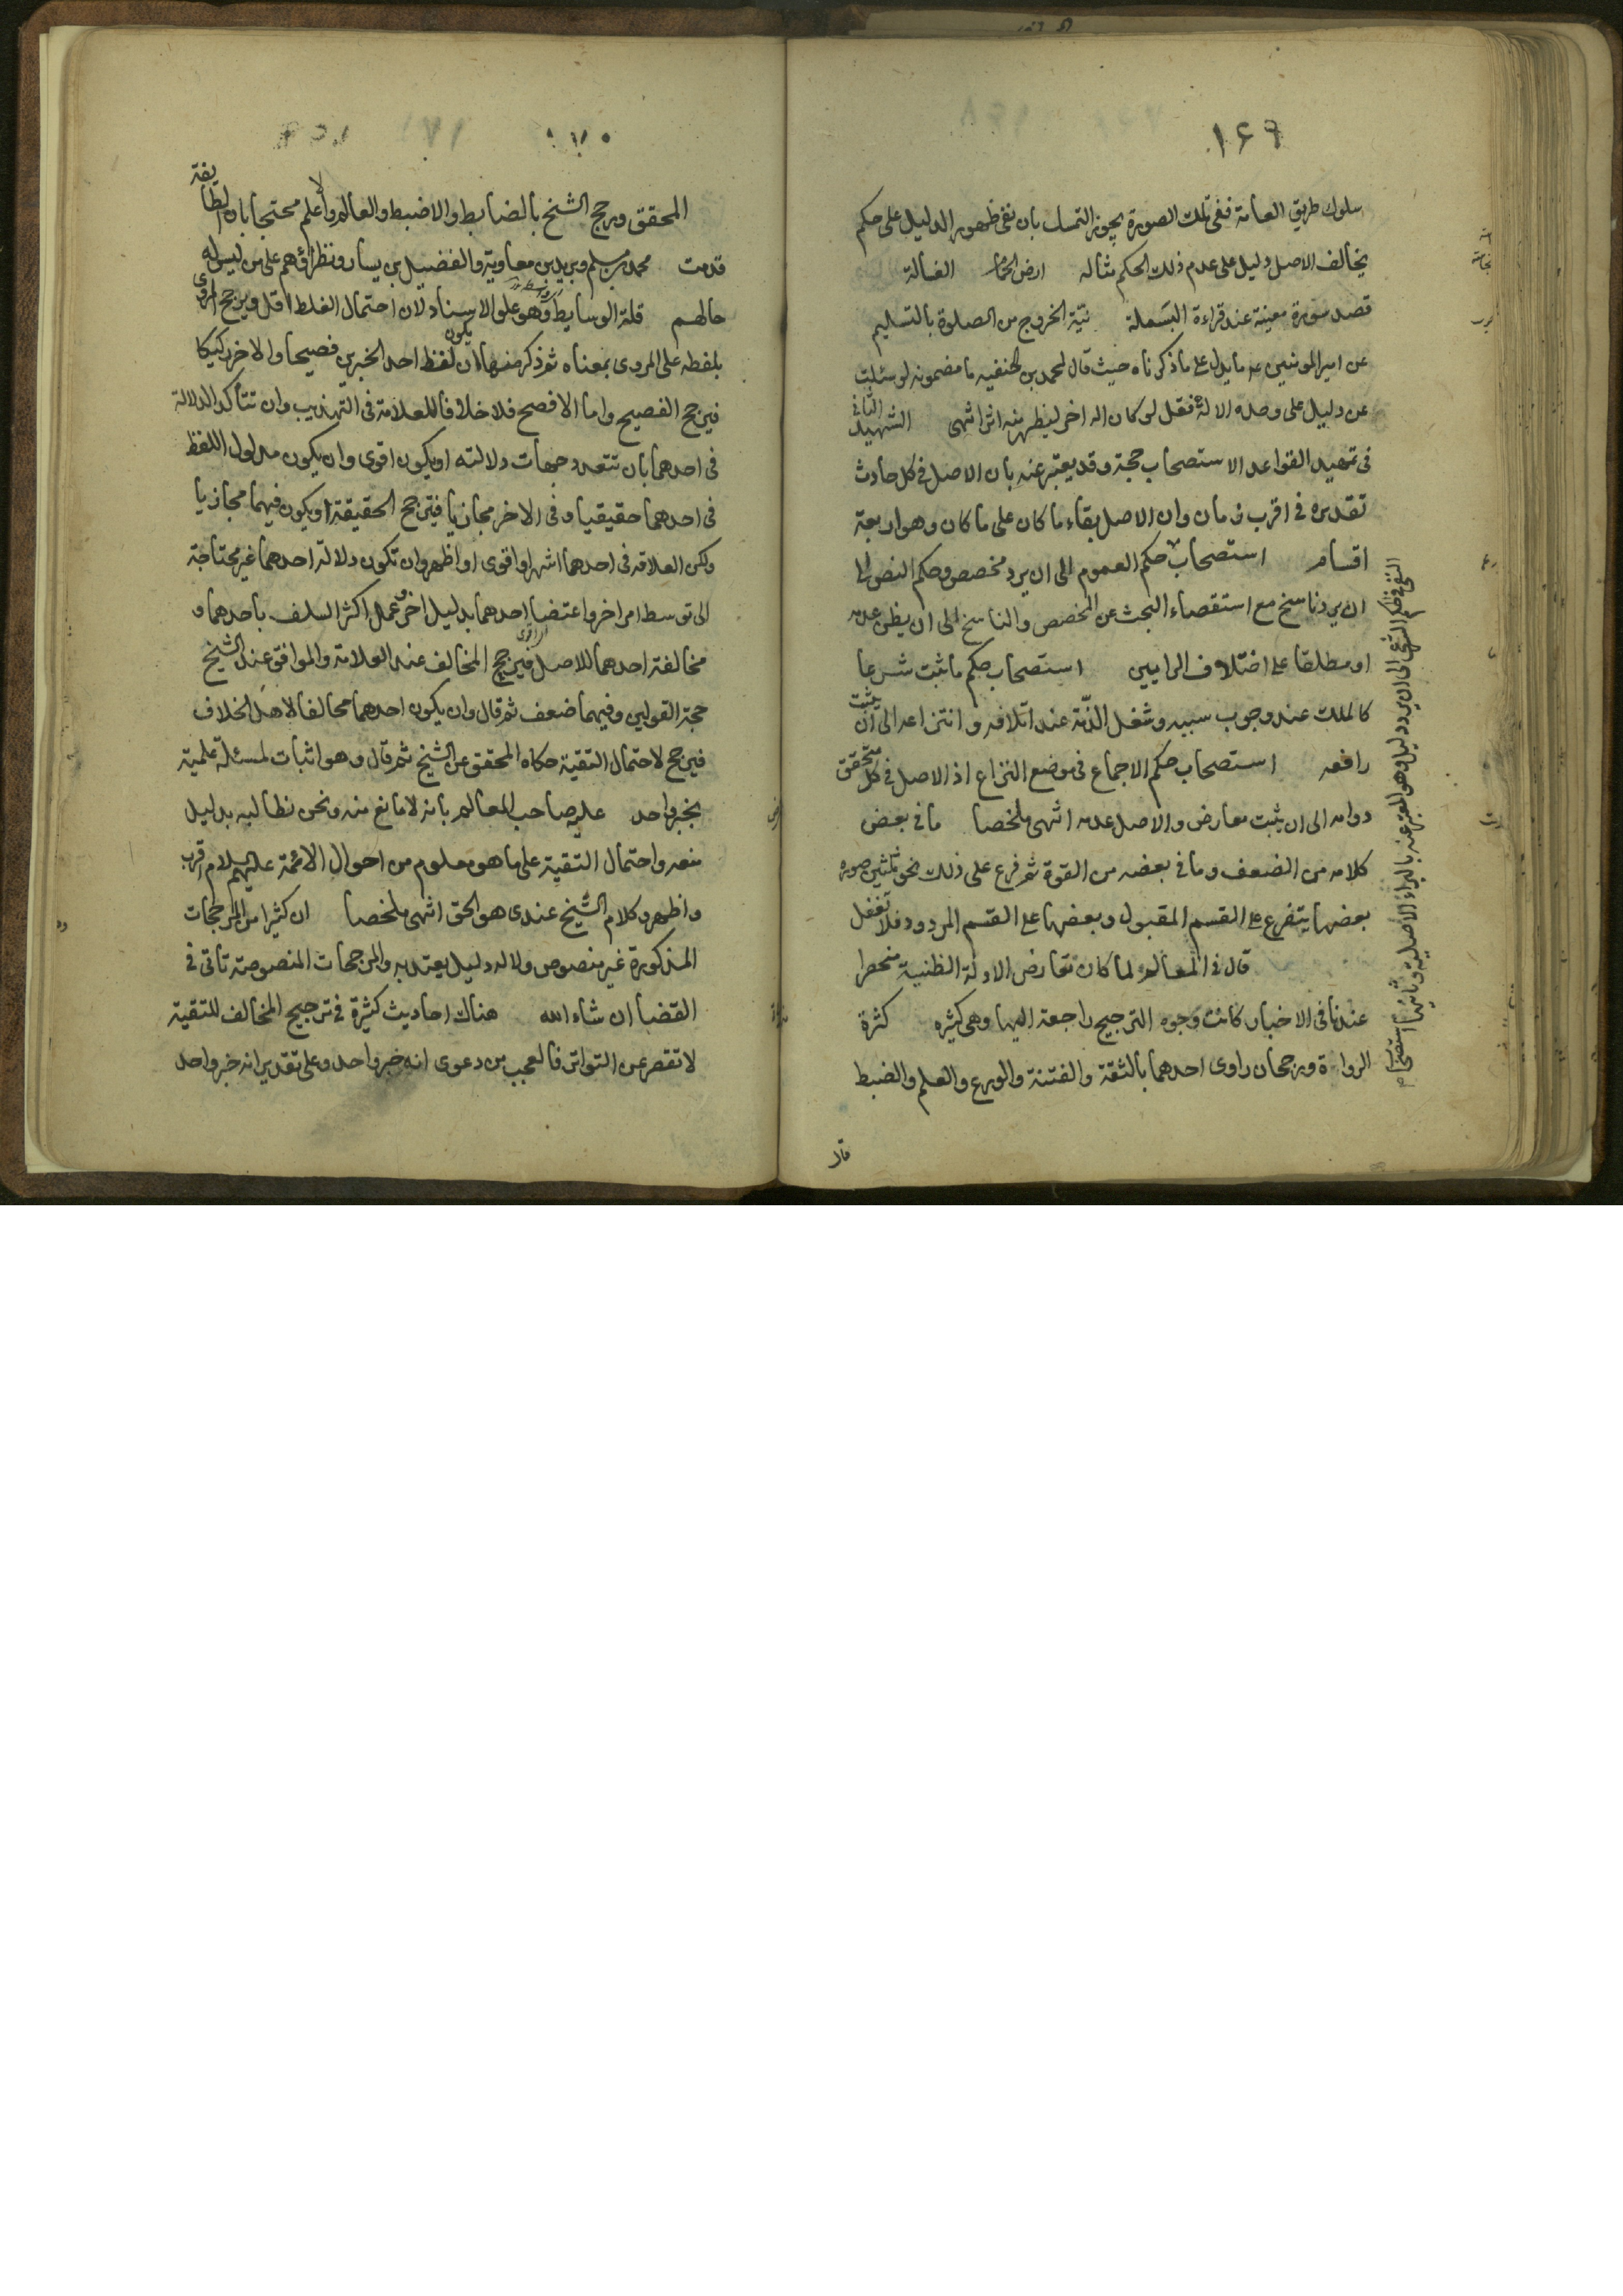 ١۶٩
سلوك طريق العامة ففى تلك الصورة يجوز التمسك بان نفى ظهور الدليل على حكم
يخالف الاصل دليل على عدم ذلك الحكم مثاله ارض الحمام الغسالة
قصد سورة معينة عند قراءة البسملة نيّة الخروج من الصلوة بالتسليم
عن امير المومنين عه ما يدل على ما ذكرناه حيث قال لمحمد بن الحنفيه ما مضمونه لو سئلت
عن دليل على وحده الالة فقل لو كان اله اخر ليظهر منه اثر انتهى الشهيد الثانى
فى تمهيد القواعد الاستصحاب حجة وقد يعتبر عنه بان الاصل فى كل حادث
تقديره فى اقرب زمان وان الاصل بقاء ما كان على ما كان وهو اربعة
اقسام استصحاب حكم العموم الى ان يرد مخصص وحكم النص الى
ان يرد ناسخ مع استقصاء البحث عن المخصص والناسخ الى ان يظن عدمه
او مطلقا على اختلاف الرايين استصحاب حكم ما ثبت شرعا
كالملك عند وجوب سببه وشغل الذّمة عند اتلافه و انتزاعه الى ان يثبت
رافعه استصحاب حكم الاجماع فى موضع النزاع اذ الاصل فى كل متحقق
دوامه الى ان يثبت معارض والاصل عدمه انتهى ملخصا ما فى بعض
كلامه من الضعف وما فى بعضه من القوة ثم فرع على ذلك نحو ثلثين صوره
بعضها يتفرع على القسم المقبول وبعضها على القسم المردود فلا تغفل
قال فى المعالم لما كان تعارض الادلة الظنية منحصرا
عندنا فى الاخبار كانت وجوه الترجيح راجعة اليها وهى كثيره كثرة
الرواة ورجحان راوى احدهما بالثقة والفتنة والورع والعلم والضبط
قال
النفى فى الحكم الشرعى الى ان يرد دليل وهو المعبر عنه بالبراءة الاصلية وثانيها استصحاب
١٧٠
المحقق ورجح الشيخ بالضابط والاضبط والعالم والاعلم محتجا بان الطايفة
قدمت محمد بن مسلم وبريد بن معاوية والفضيل بن يسار ونظرائهم على من ليس له
حالهم قلة الوسايط وهو علو الاسناد لان احتمال الغلط اقل ويرجح المروى
بلفظه على المروى بمعناه ثم ذكر منها ان يكون لفظ احد الخبرين فصيحا والاخر ركيكا
فيرجح الفصيح واما الافصح فلا خلافا للعلامة فى التهذيب وان تتأكد الدلالة
فى احدهما بان تتعدد جهات دلالته او يكون اقوى وان يكون مدلول اللفظ
فى احدهما حقيقيا و فى الاخر مجازيا فيترجح الحقيقة او يكون فيهما مجازيا
ولكن العلاقه فى احدهما اشهر او اقوى او اظهر وان تكون دلالة احدهما غير محتاجة
الى توسط امر اخر واعتضا احدهما بدليل اخر وعمل اكثر السلف باحدهما و
مخالفة احدهما للاصل فيرجح المخالف عند العلامة والموافق عند الشيخ
حجة القولين وفيهما ضعف ثم قال وان يكون احدهما مخالفا لاهل الخلاف
فيرجح لاحتمال التقية حكاه المحقق عن الشيخ ثم قال وهو اثبات لمسئلة علمية
بخبر واحد عليه صاحب المعالم بانه لا مانع منه ونحن نطالبه بدليل
منعه واحتمال التقية على ما هو معلوم من احوال الائمة عليهم السلام اقرب
واظهر وكلام الشيخ عندى هو الحق انتهى ملخصا ان كثيرا من المرجحات
المذكورة غير منصوص ولا له دليل يعتد به والمرجحات المنصوصة تاتى فى
القضا ان شاء الله هناك احاديث كثيرة فى ترجيح المخالف للتقية
لا تقصر عن التواتر فالعجب من دعوى انه خبر واحد وعلى تقدير انه خبر واحد